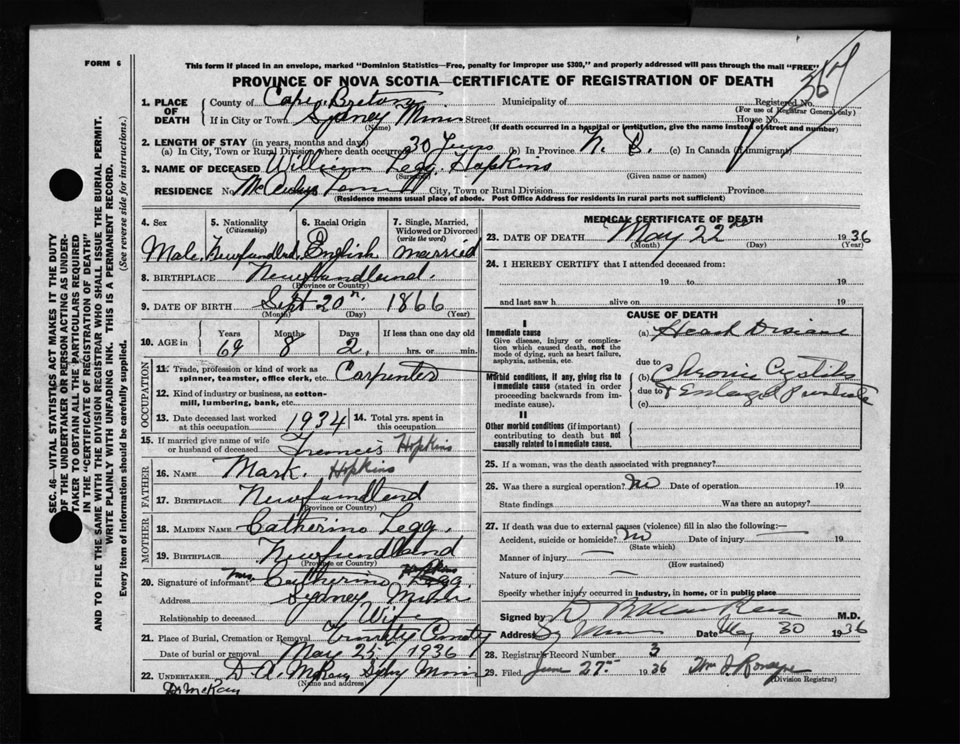 FORM 6
This form if placed in an envelope, marked "Dominion Statistics—Free, penalty for improper use $300," and properly addressed will pass through the mail "FREE"
PROVINCE OF NOVA SCOTIA—CERTIFICATE OF REGISTRATION OF DEATH
SEC. 46—VITAL STATISTICS ACT MAKES IT THE DUTY
OF THE UNDERTAKER OR PERSON ACTING AS UNDER-
TAKER TO OBTAIN ALL THE PARTICULARS REQUIRED
IN THE "CERTIFICATE OF REGISTRATION OF DEATH"
AND TO FILE THE SAME WITH THE DIVISION REGISTRAR WHO SHALL ISSUE THE BURIAL PERMIT.
WRITE PLAINLY WITH UNFADING INK. THIS IS A PERMANENT RECORD.
Every item of information should be carefully supplied. (See reverse side for instructions.)
1. PLACE OF DEATH
County of Cape Breton Municipality of Registered No.
(For use of Registrar General only)
If in City or Town Sydney Mines Street House No.
(Name) (If death occurred in a hospital or institution, give the name instead of street and number)
2. LENGTH OF STAY (in years, months and days)
(a) In City, Town or Rural Division where death occurred 30 Years (b) In Province N. S. (c) In Canada (if immigrant)
3. NAME OF DECEASED William Legg Hopkins
(Surname) (Given name or names)
RESIDENCE No. City, Town or Rural Division Province
(Residence means usual place of abode. Post Office Address for residents in rural parts not sufficient)
4. Sex Male
5. Nationality (Citizenship) Newfoundland
6. Racial Origin English
7. Single, Married, Widowed or Divorced (write the word) Married
8. BIRTHPLACE Newfoundland
(Province or Country)
9. DATE OF BIRTH Sept 20 1866
(Month) (Day) (Year)
10. AGE in Years 69 Months 8 Days 2 If less than one day old hrs. or min.
OCCUPATION
11. Trade, profession or kind of work as spinner, teamster, office clerk, etc. Carpenter
12. Kind of industry or business, as cotton-mill, lumbering, bank, etc.
13. Date deceased last worked at this occupation 1934 14. Total yrs. spent in this occupation
15. If married give name of wife or husband of deceased Hopkins
FATHER
16. NAME Mark. Hopkins
17. BIRTHPLACE Newfoundland
(Province or Country)
MOTHER
18. MAIDEN NAME Catherine Legg.
19. BIRTHPLACE Newfundland
(Province or Country)
20. Signature of informant Mrs. Catherine Hopkins Legg.
Address Sydney Mines
Relationship to deceased Wife
21. Place of Burial, Cremation or Removal Trinity Cemetery
Date of burial or removal May 25 1936
22. UNDERTAKER D. A. McRay Sidy Mines
(Name and address)
Dr McRay
MEDICAL CERTIFICATE OF DEATH
23. DATE OF DEATH May 22nd 1936
(Month) (Day) (Year)
24. I HEREBY CERTIFY that I attended deceased from:
19 to 19
and last saw h alive on 19
CAUSE OF DEATH
I
Immediate cause
Give disease, injury or complication which caused death, not the mode of dying, such as heart failure, asphyxia, asthenia, etc.
(a) Heart Disease
due to
Morbid conditions, if any, giving rise to immediate cause (stated in order proceeding backwards from immediate cause).
(b) Chronic Cystitis
due to & Enlarged Prostate
(c)
II
Other morbid conditions (if important) contributing to death but not causally related to immediate cause.
25. If a woman, was the death associated with pregnancy?
26. Was there a surgical operation? No Date of operation 19
State findings Was there an autopsy?
27. If death was due to external causes (violence) fill in also the following:—
Accident, suicide or homicide? No Date of injury 19
(State which)
Manner of injury
(How sustained)
Nature of injury
Specify whether injury occurred in industry, in home, or in public place
Signed by M.D.
Address Sy Mines Date May 30 1936
28. Registrar's Record Number 3
29. Filed June 27 1936
(Division Registrar)